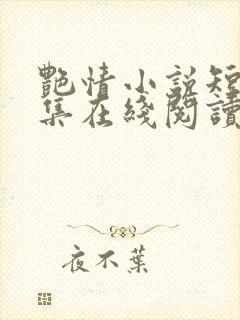 艷情小說短
集在綫閱讀
夜不葉